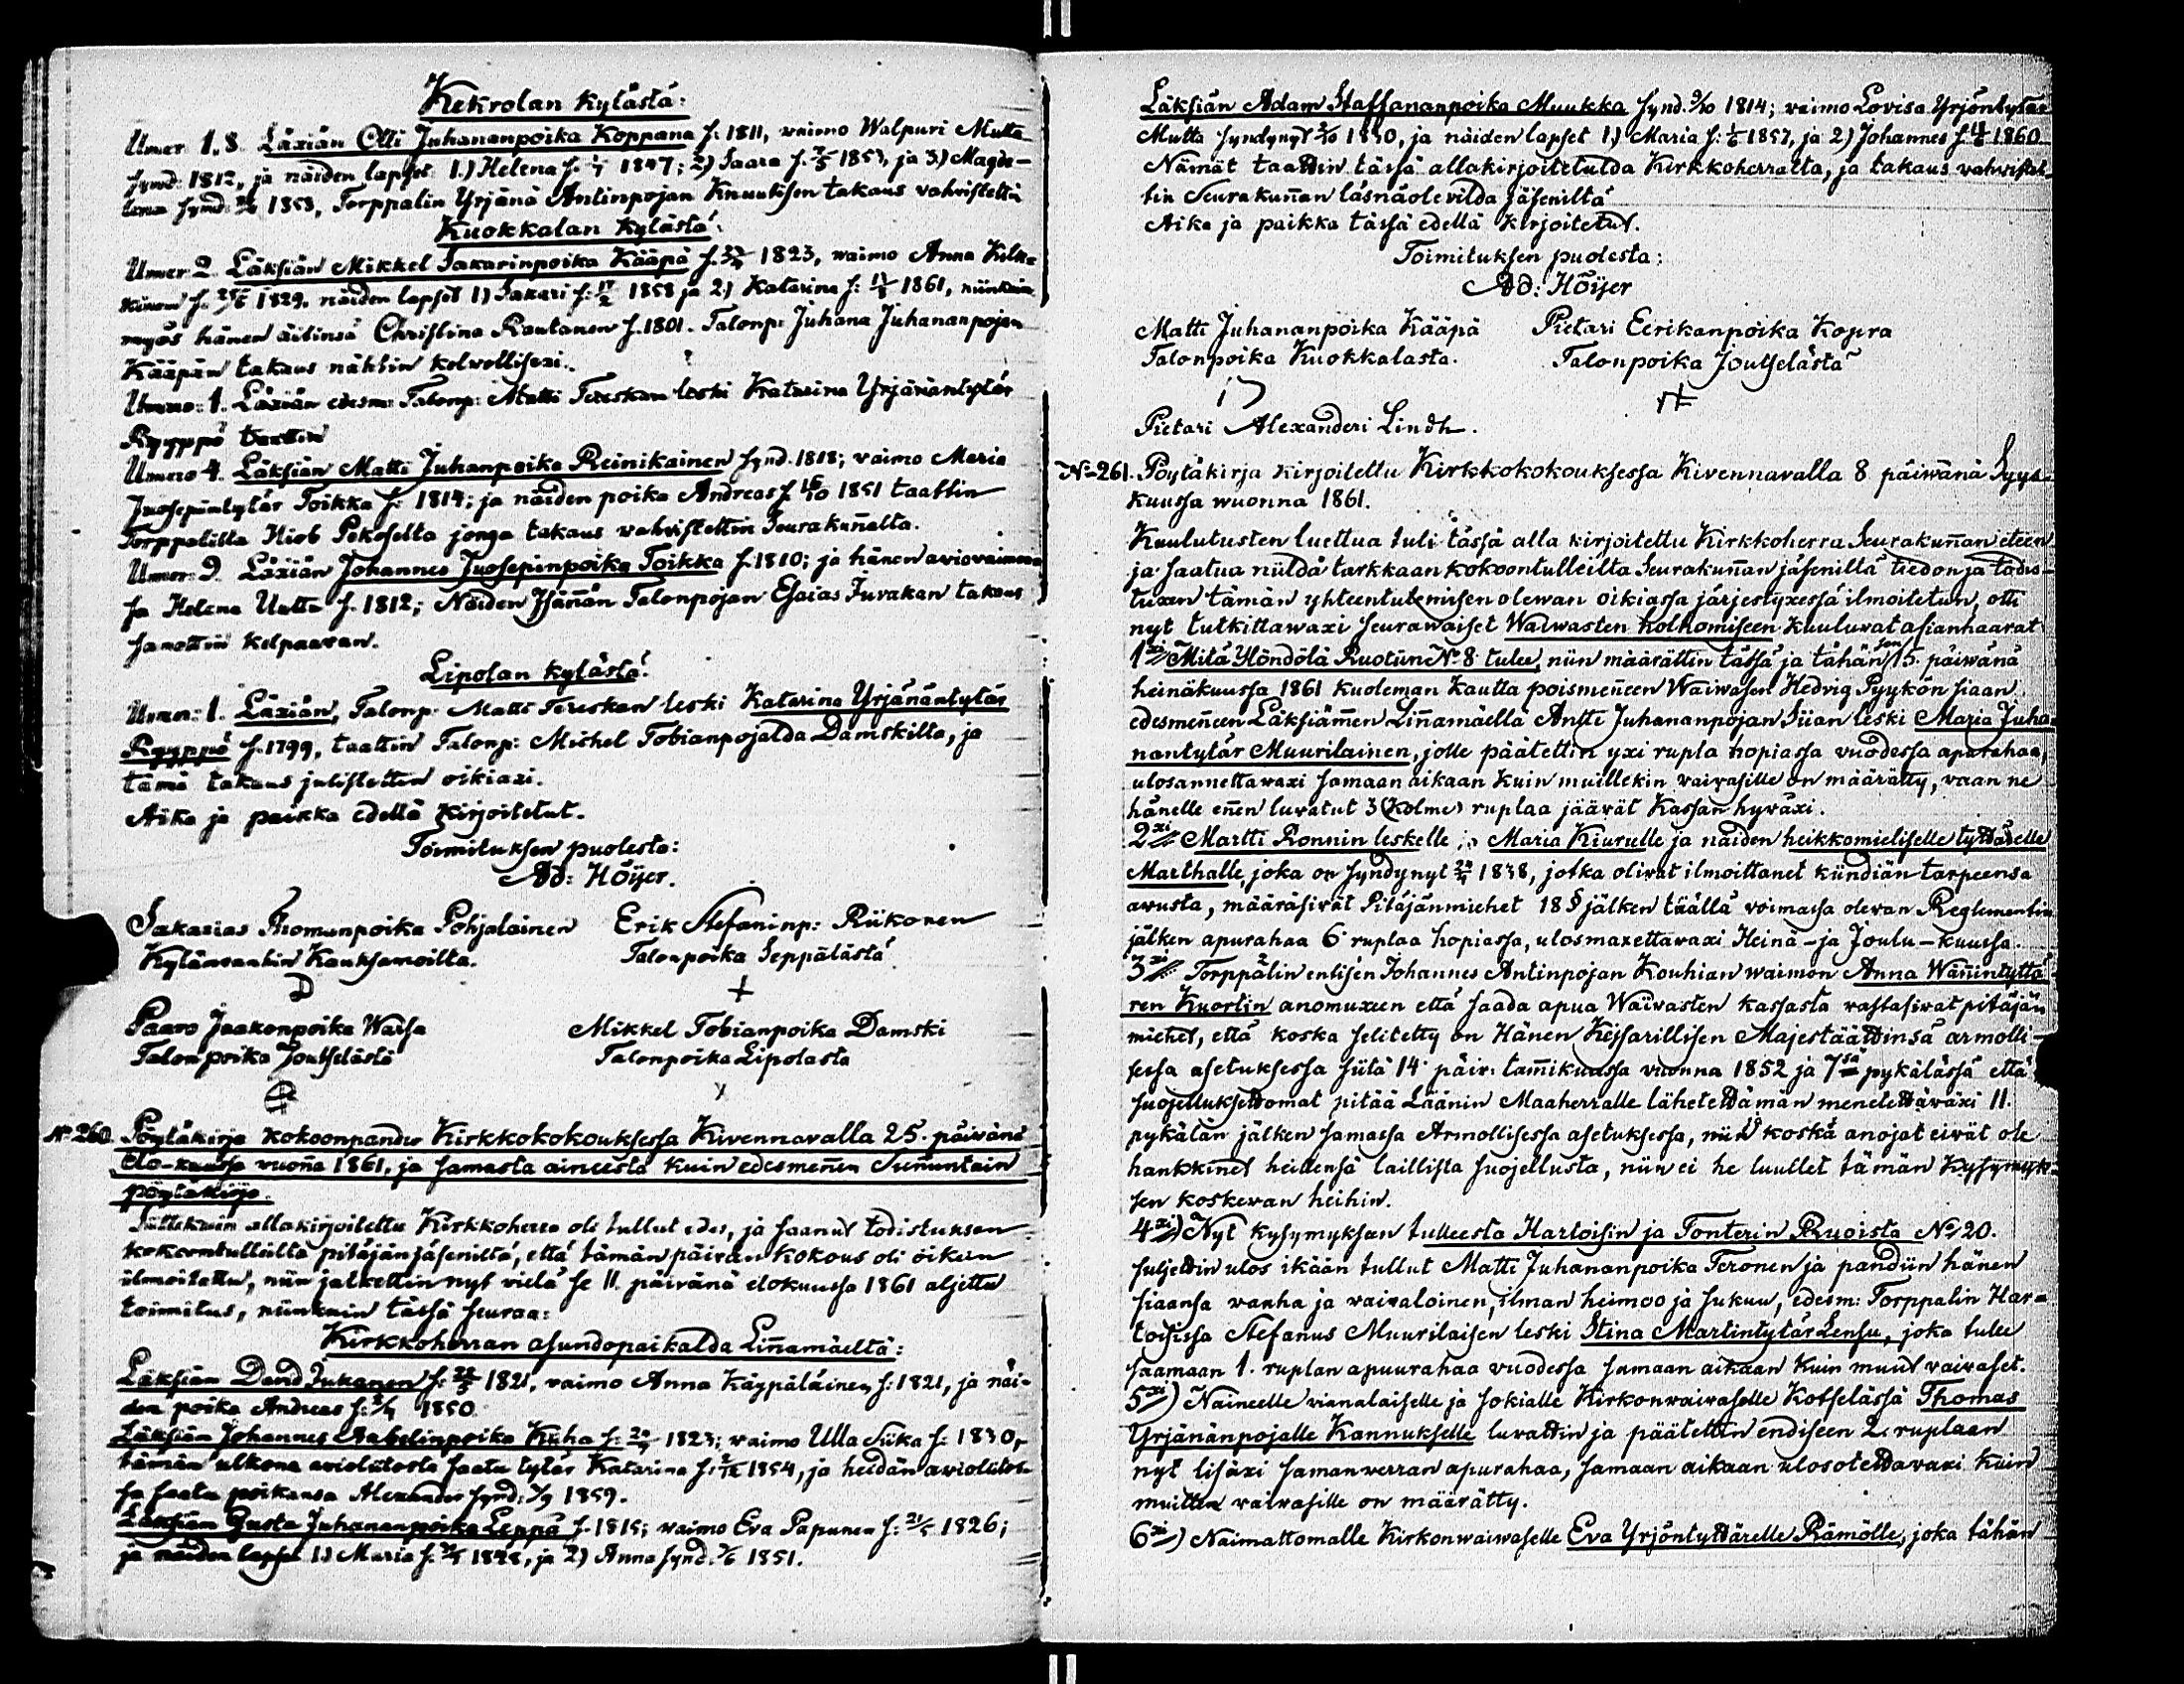 Kekrolan kylästä:
Umer 1.8. Läxiän Olli Juhananpoika Koppana f. 1811, waimo Walpuri Mutta
synd: 1812, ja näiden lapset 1.) Helena f. 1847; 2) Saara f. 1853, ja 3) Magda-
lena synd: 1858, Torppalin Yrjänä Antinpojan Knuutisen takaus vahvistettin
Kuokkalan kylästä:
Umer 2. Läksiän Mikkel Sakarinpoika Kääpä f. 1823, waimo Anna Kilk-
kinen f. 1829, näiden lapset 1) Sakari f: 17/2 1858 ja 2) Katarina f: 1861, niinkuin
myös hänen äitinsä Christina Rautanen f. 1801. Talonp: Juhana Juhananpojan
Kääpän takaus nähtin kelwollisexi.
Umero: 1. Läxiän edesm: Talonp: Matti Tereskan leski Katarina Yrjänäntytär
Ryyppö taattin
Umero 4. Läksiän Matti Juhanpoika Reinikainen synd. 1818; vaimo Maria
Juosepintytär Toikka f: 1814; ja näiden poika Andreas f. 15/10 1851 taattin
Torppalilta Hiob Pekoselta jonga takaus vahvistettin Seurakuñalta.
Umer: 9. Läxiän Johannes Juosepinpoika Toikka f. 1810; ja hänen aviovaimon-
sa Helena Uutta f. 1812; Näiden Isäñän Talonpojan Esaias Juvakan takaus
sanottiin kelpaavan.
Lipolan kylästä:
Umer: 1. Läxiän, Talonp. Matti Tereskan leski Katarina Yrjänäntytär
Ryyppö f. 1799, taattin Talonp: Michel Tobianpojalda Damskilta, ja
tämä takaus julistettin oikiaxi.
Aika ja paikka edellä kirjoitetut.
Toimituksen puolesta:
Ad: Höijer.
Sakarias Thomanpoika Pohjalainen Erik Stefaninp: Riikonen
Kylänvanhin Kauksamoilta. Talonpoika Seppälästä
Paavo Jaakonpoika Waissa Mikkel Tobianpoika Damski
Talonpoika Joutselästä Talonpoika Lipolasta
No 260. Pöytäkirja kokoonpandu Kirkkokokouksessa Kivennavalla 25. päivänä
elo-kuussa vuoña 1861, ja samasta aineesta kuin edesmeñen Suñuntain
pöytäkirja.
Sittekuin allakirjoitettu Kirkkoherra oli tullut edes, ja saanut todistuksen
kokoontulleilta pitäjän jäseniltä, että tämän päivän kokous oli oikein
ilmoitettu, niin jatkettin nyt vielä se 11. päivänä elokuussa 1861 aljettu
toimitus, niinkuin tässä seuraa:
Kirkkoherran asundopaikalda Liñamäeltä:
Läksiän David Inkanen f: 1821, vaimo Anna Käypäläinen f: 1821, ja näi-
den poika Andreas f: 1850
Läksiän Johannes Aabelinpoika Kiiha f: 1823; vaimo Ulla Siika f: 1830,
tämän ulkona aviolütosta saatu tytär Katarina f: 1854, ja heidän aviolütos-
sa saatu poikansa Alexander synd: 1859.
Läksiän Gusta Juhananpoika Leppä f. 1815; vaimo Eva Papunen f: 21/5 1826;
ja näiden lapset 1.) Maria f: 1848, ja 2) Anna synd: 1851.
Läksiän Adam Staffananpoika Muukka synd. 9/10 1814; vaimo Lovisa Yrjöntytär
Mutta syndynyt 1830, ja näiden lapset 1.) Maria f: 1/6 1857, ja 2) Johannes f. 1860
Nämät taattin tässä allakirjoitetulda Kirkkoherralta, ja takaus vahvistet-
tin Seurakuñan läsnäolevilda jäseniltä
Aika ja paikka tässä edellä kirjoitetut.
Toimituksen puolesta:
Ad: Höijer
Matti Juhananpoika Kääpä Pietari Eerikanpoika Kopra
Talonpoika Kuokkalasta. Talonpoika Joutselästä
Pietari Alexanderi Lindh.
No 261. Pöytäkirja kirjoitettu Kirkkokokouksessa Kivennavalla 8 päiwänä Syys-
kuussa wuonna 1861.
Kuulutusten luettua tuli tässä alla kirjoitettu Kirkkoherra Seurakuñan eteen
ja saatua niildä tarkkaan kokoontulleilta Seurakuñan jäseniltä tiedon ja todis-
tuxen tämän yhteentulemisen olewan oikiassa järjestyxessä ilmoitetun, otti
nyt tutkittawaxi seurawaiset Waiwasten holhomiseen kuuluvat asianhaarat
1xi Mitä Ylöndölä Ruotiin No 8 tulee, niin määrättin tässä ja tähän sen 15. päiwänä
heinäkuussa 1861 kuoleman kautta poismeñeen Waiwasen Hedvig Pyykön siaan
edesmeñeen Läksiämen Liñamäellä Antti Juhananpojan Siian leski Maria Juha-
nantytär Muurilainen, jolle päätettin yxi rupla hopiassa vuodessa apurahaa,
ulosannettawaxi samaan aikaan kuin muillekin vaivasille on määrätty, vaan ne
hänelle eñen luvatut 3 (kolme) ruplaa jäävät Kassan hyväxi.
2xi Martti Ronnin leskelle Maria Kiurulle ja näiden heikkomieliselle tyttärelle
Marthalle, joka on syndynyt 1838, jotka olivat ilmoittanet kiindiän tarpeensa
avusta, määräsivät Pitäjänmiehet 18 § jälken täällä voimassa olevan Reglementin
jälken apurahaa 6 ruplaa hopiassa, ulosmaxettavaxi Heinä- ja Joulu-kuussa.
3xi Torppalin entisen Johannes Antinpojan Kouhian waimon Anna Wäñintyttä-
ren Kuortin anomuxeen että saada apua Waiwasten kassasta vastasivat pitäjän
miehet, että koska selitetty on Hänen Keisarillisen Majestäättinsä armolli-
sessa asetuksessa siitä 14 päiv: tam̃ikuussa vuonna 1852 ja 7sä pykälässä että
suojelluksettomat pitää Läänin Maaherralle lähetettämän menetettäväxi 11.
pykälän jälken samassa Armollisessa asetuksessa, niin koska anojat eivät ole
hankkinet heillensä laillista suojellusta, niin ei he luullet tämän kysymyk-
sen koskevan heihin.
4xi) Nyt kysymyksen tulleesta Hartoisin ja Tonterin Ruoista No 20.
suljettin ulos ikään tullut Matti Juhananpoika Teronen ja pandiin hänen
siaansa vanha ja vaivaloinen, ilman heimoo ja sukuu, edesm: Torppalin Har-
toisissa Stefanus Muurilaisen leski Stina Martintytär Lensu, joka tulee
saamaan 1. ruplan apuurahaa vuodessa samaan aikaan kuin muut vaivaset.
5xi) Naineelle vianalaiselle ja sokialle Kirkonvaivaselle Kotselässä Thomas
Yrjänänpojalle Kannukselle luvattin ja päätettin endiseen 2. ruplaan
nyt lisäxi samanverran apurahaa, samaan aikaan ulosotettavaxi kuin
muitten vaivasille on määrätty.
6xi) Naimattomalle Kirkonwaiwaselle Eva Yrjöntyttärelle Rämölle, joka tähän